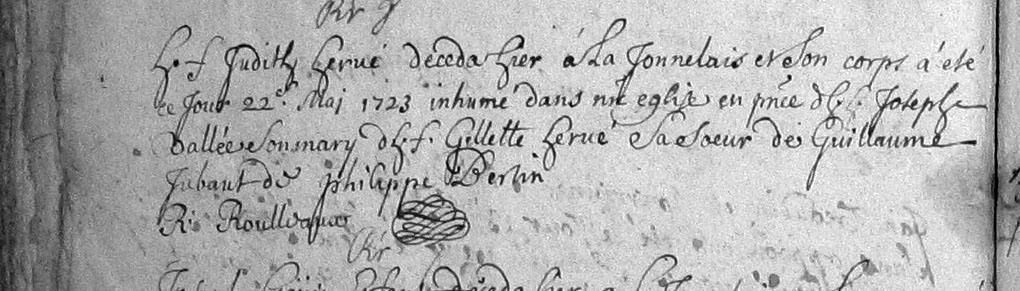 h. f. Judith hervé deceda hier á La Jonnelais et Son corps á été
ce Jour 22e. Maj 1723 inhumé dans nre eglise en pnce d h. f. Joseph
Vallée Son mary d h. f. Gillette hervé Sa Soeur de Guillaume
Jubaut de philippe Bertin
R:
hier á